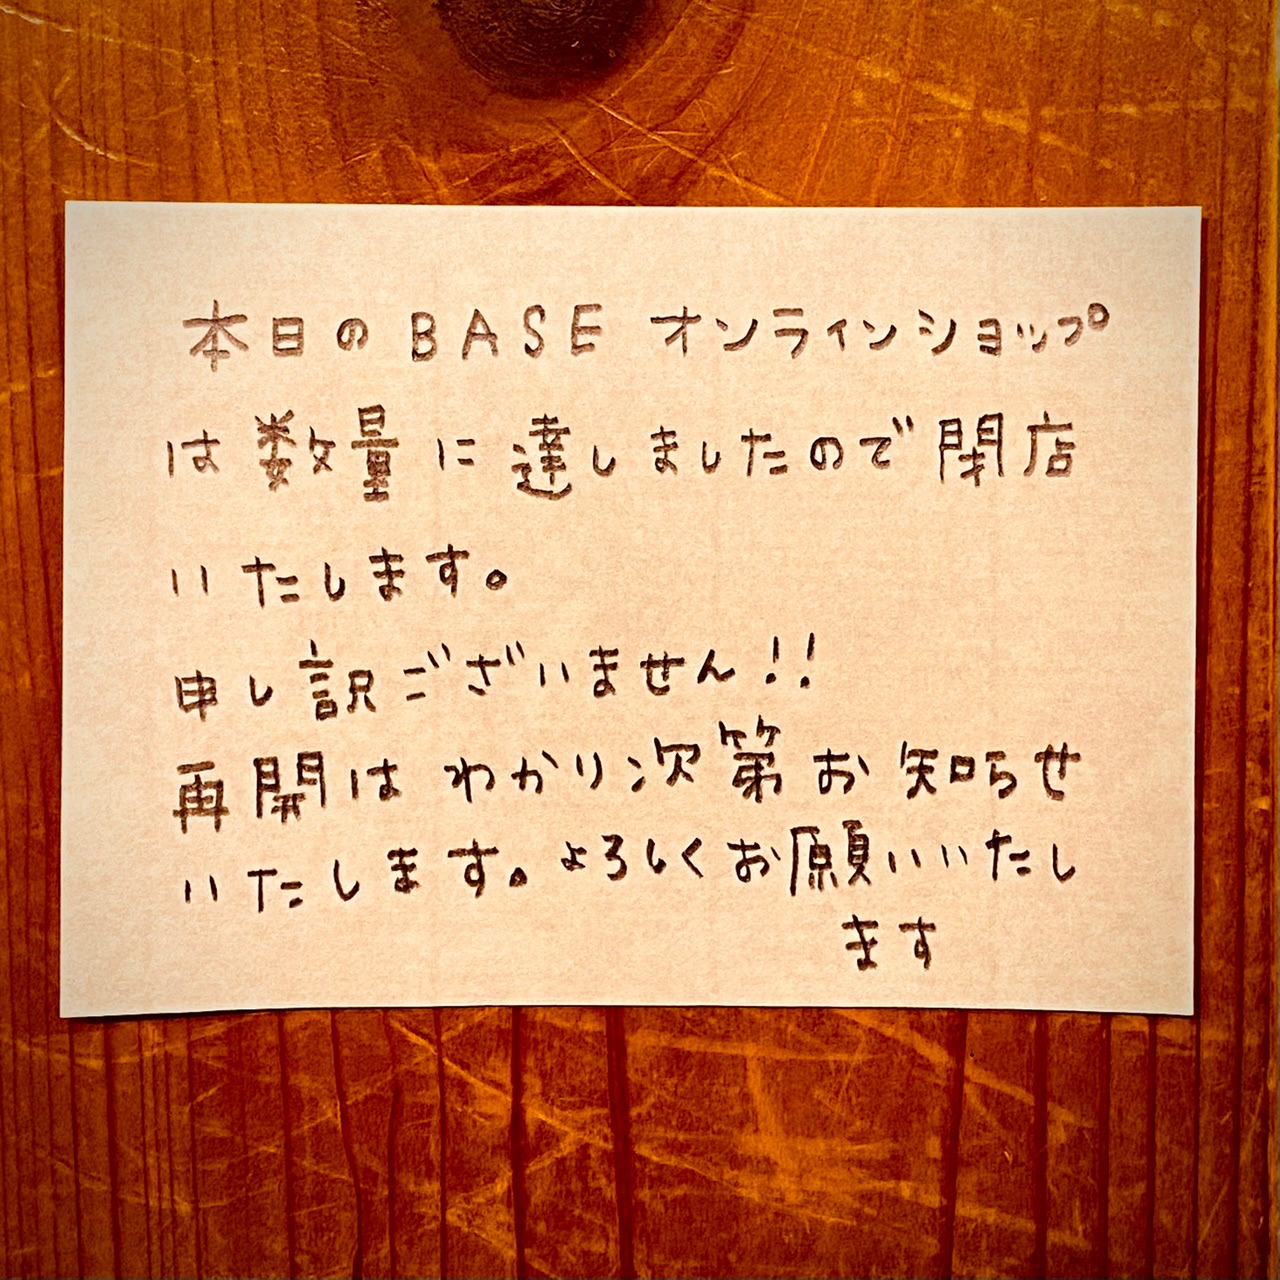 本日のBASE オンラインショップ
は数量に達しましたので閉店
いたします。
申し訳ございません!!
再開はわかり次第お知らせ
いたします。よろしくお願いいたし
ます